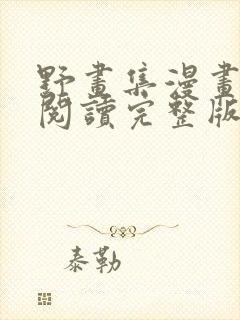 野畫集漫畫
閱讀完整版
泰勒